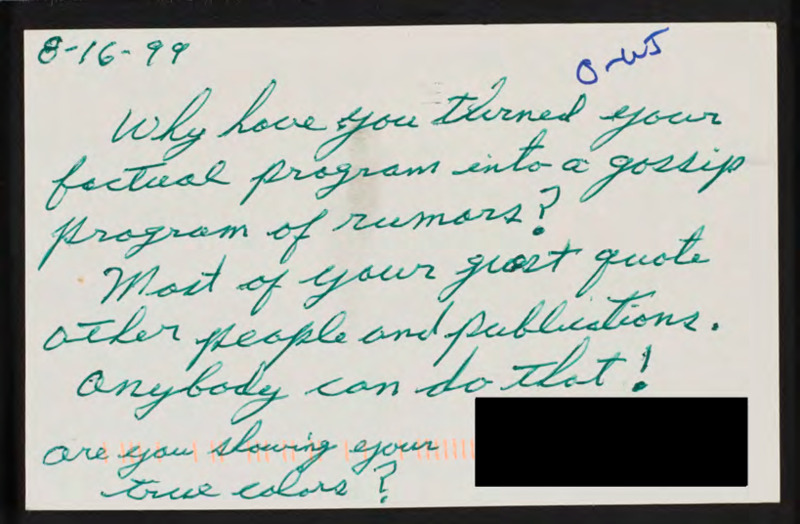 8-16-99
Why have you turned your
factual program into a gossip
program of rumors?
Most of your guest quote
other people and publications.
Anybody can do that!
Are you showing your
true colors?